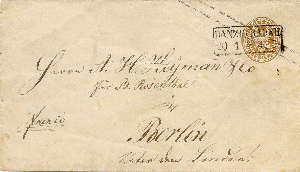 DANZIG
20 1
Herrn A. H. Heyman & Co
für St. Rosenthal
franco
Berlin
Unter den Linden